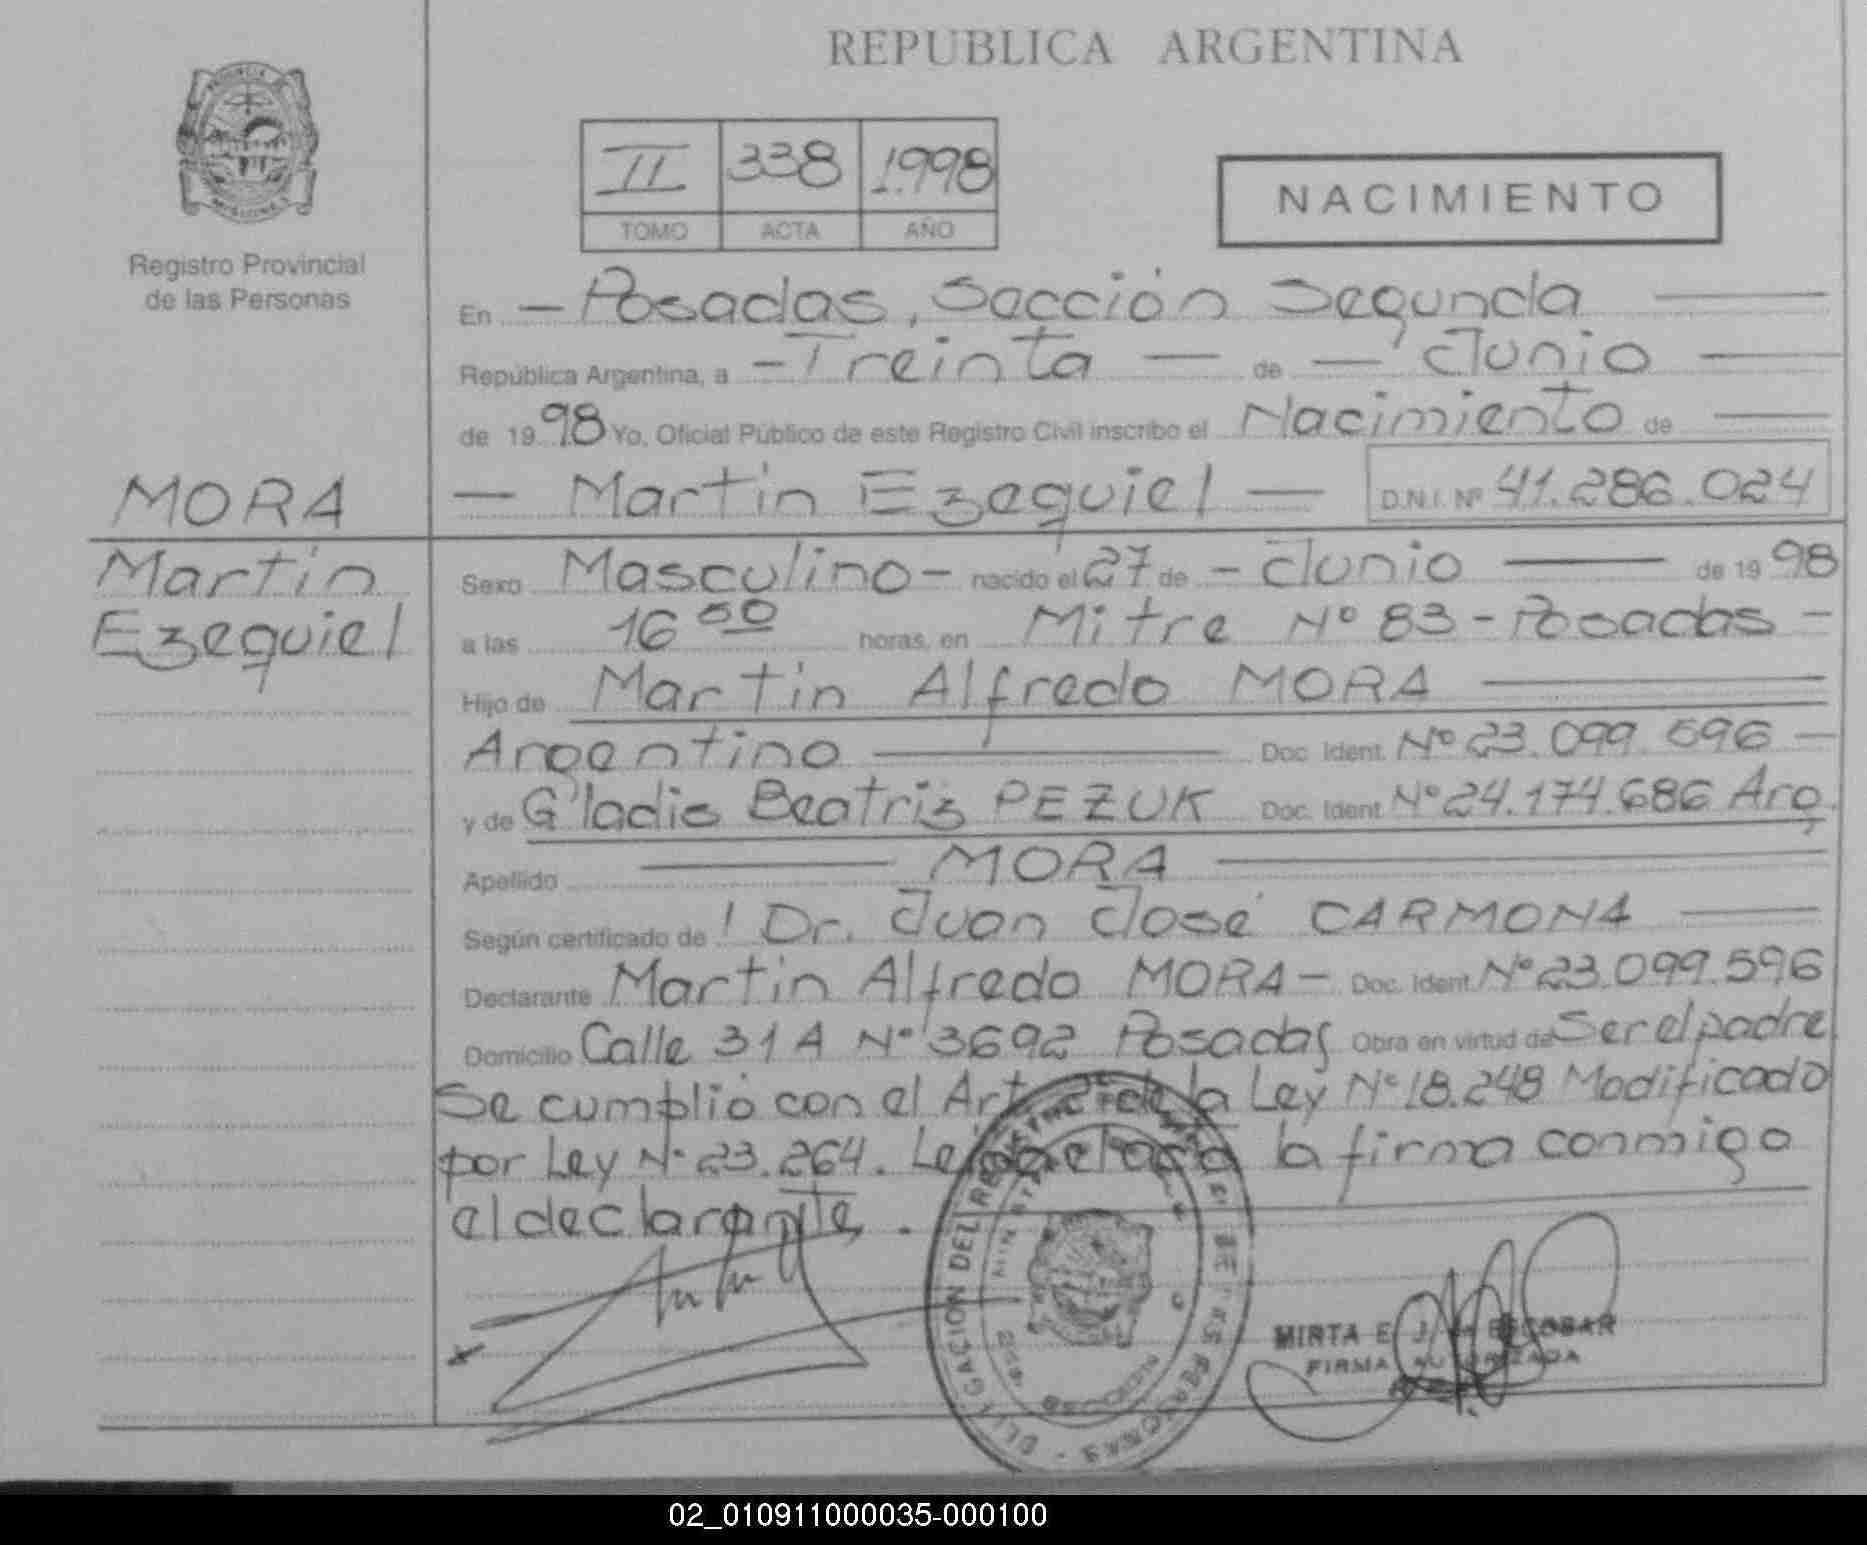 REPUBLICA ARGENTINA
II 338 1.998
TOMO ACTA AÑO
NACIMIENTO
Registro Provincial
de las Personas
En - Posadas, Sección Segunda
República Argentina, a - Treinta - de - Junio
de 1998 Yo, Oficial Público de este Registro Civil inscribo el Nacimiento de
- Martin Ezequiel - D.N.I. Nº 41.286.024
MORA
Martin
Ezequiel
Sexo Masculino - nacido el 27 de - Junio - de 1998
a las 16 50 horas, en Mitre Nº 83 - Posadas -
Hijo de Martin Alfredo MORA
Argentino - Doc. Ident. Nº 23.099.596 -
y de Gladis Beatriz PEZUK Doc. Ident. Nº 24.174.686 Arg.
Apellido MORA
Según certificado de Dr. Juan José CARMONA
Declarante Martin Alfredo MORA - Doc. Ident. Nº 23.099.596
Domicilio Calle 31 A Nº 3692 Posadas Obra en virtud de Ser el padre
Se cumplió con el Art de la Ley Nº 18.248 Modificado
por Ley Nº 23.264. Leída el acta la firma conmigo
el declarante.
DELEGACION DEL REGISTRO DE LAS PERSONAS
MIRTA E. J. de ESCOBAR
FIRMA AUTORIZADA
02_010911000035-000100